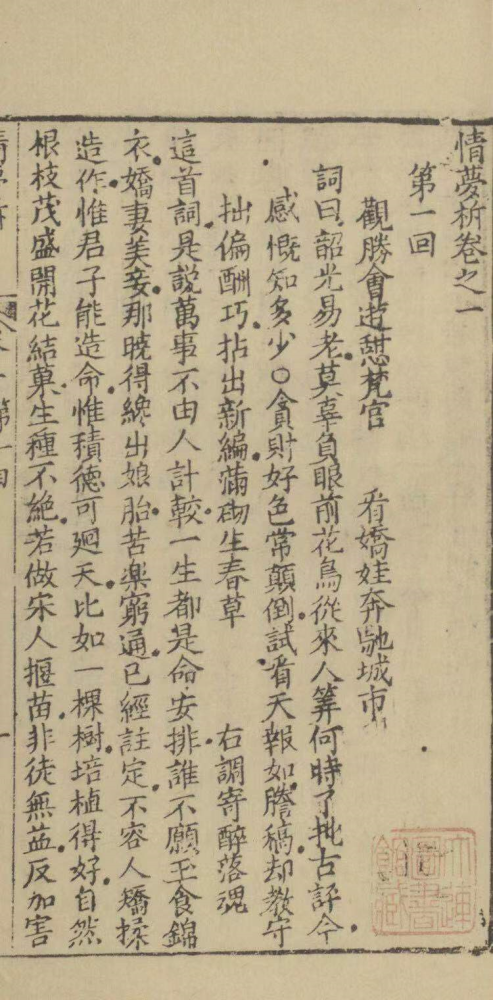 情夢柝卷之一
第一回
觀勝會遊憩梵宮　看嬌娃奔馳城市
詞曰韶光易老莫辜負眼前花鳥從來人算何時了批古評今
感慨知多少○貪財好色常顛倒試看天報如謄稿却教守
拙偏酬巧拈出新編滿砌生春草　右調寄醉落魂
這首詞是說萬事不由人計較一生都是命安排誰不願玉食錦
衣嬌妻美妾那曉得纔出娘胎苦樂窮通已經註定不容人矯揉
造作惟君子能造命惟積德可廻天比如一棵樹培植得好自然
根枝茂盛開花結菓生種不絶若做宋人揠苗非徒無益反加害
大連圖書館藏